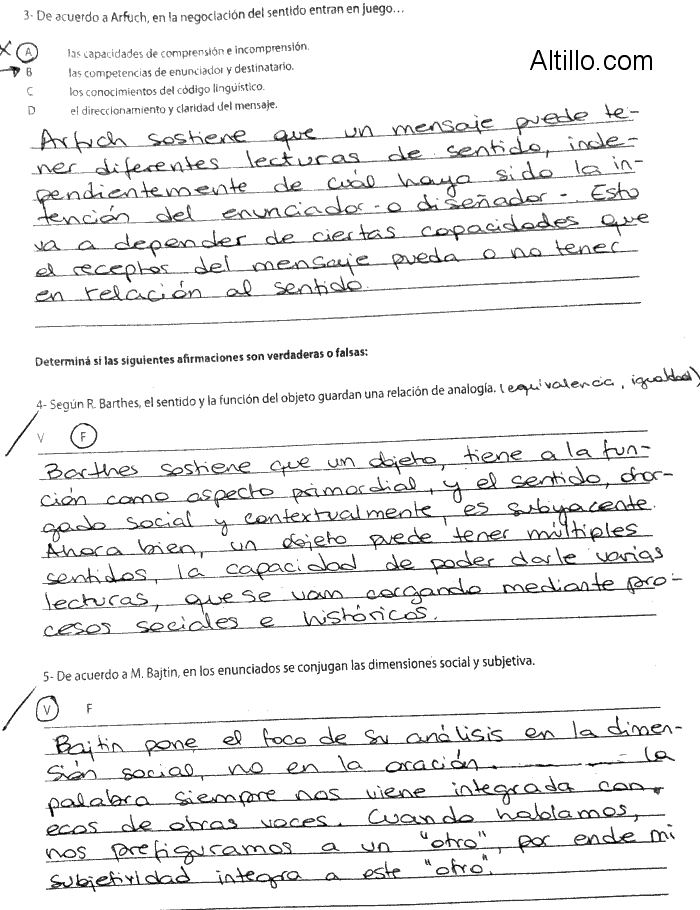 3- De acuerdo a Arfuch, en la negociación del sentido entran en juego...
X A las capacidades de comprensión e incomprensión.
→ B las competencias de enunciador y destinatario.
C los conocimientos del código lingüístico.
D el direccionamiento y claridad del mensaje.
Altillo.com
Arfuch sostiene que un mensaje puede te-
ner diferentes lecturas de sentido, inde-
pendientemente de cuál haya sido la in-
tención del enunciador -o diseñador-. Esto
va a depender de ciertas capacidades que
el receptos del mensaje pueda o no tener
en relación al sentido.
Determiná si las siguientes afirmaciones son verdaderas o falsas:
4- Según R. Barthes, el sentido y la función del objeto guardan una relación de analogía. (equivalencia, igualdad)
V F
Barthes sostiene que un objeto, tiene a la fun-
ción como aspecto primordial, y el sentido, otor-
gado social y contextualmente, es subyacente.
Ahora bien, un objeto puede tener múltiples
sentidos, la capacidad de poder darle varias
lecturas, que se van cargando mediante pro-
cesos sociales e históricos.
5- De acuerdo a M. Bajtin, en los enunciados se conjugan las dimensiones social y subjetiva.
V F
Bajtin pone el foco de su análisis en la dimen-
sión social, no en la oración. La
palabra siempre nos viene integrada con
ecos de otras voces. Cuando hablamos,
nos prefiguramos a un "otro", por ende mi
subjetividad integra a este "otro".